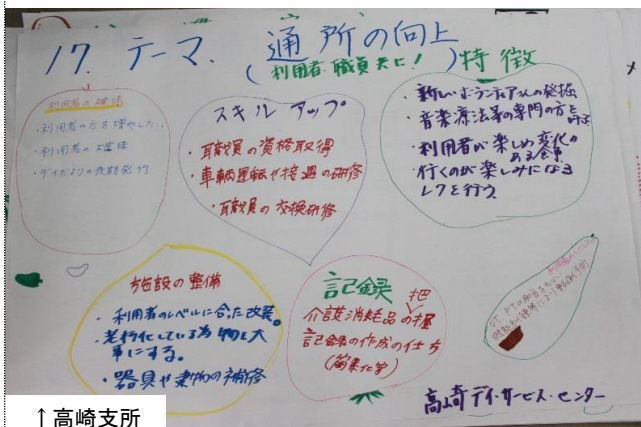 17. テーマ. 通所の向上
(利用者・職員共に!)
利用者の確保
・利用者の方を増やしたい
・利用者の確保
・デイだよりの定期発行
スキルアップ
・職員の資格取得
・車輌運転や接遇の研修
・職員の交換研修
特徴
・新しいボランティアさんの発掘
・音楽療法等の専門の方を呼ぶ
・利用者が楽しめ変化の
ある食事
・行くのが楽しみになる
レクを行う
施設の整備
・利用者のレベルに合った改装。
・老朽化している為物を大
事にする。
・器具や建物の補修
記録
介護消耗品の把握
記録の作成の仕方
(簡素化等)
高崎デイ・サービス・センター
↑高崎支所